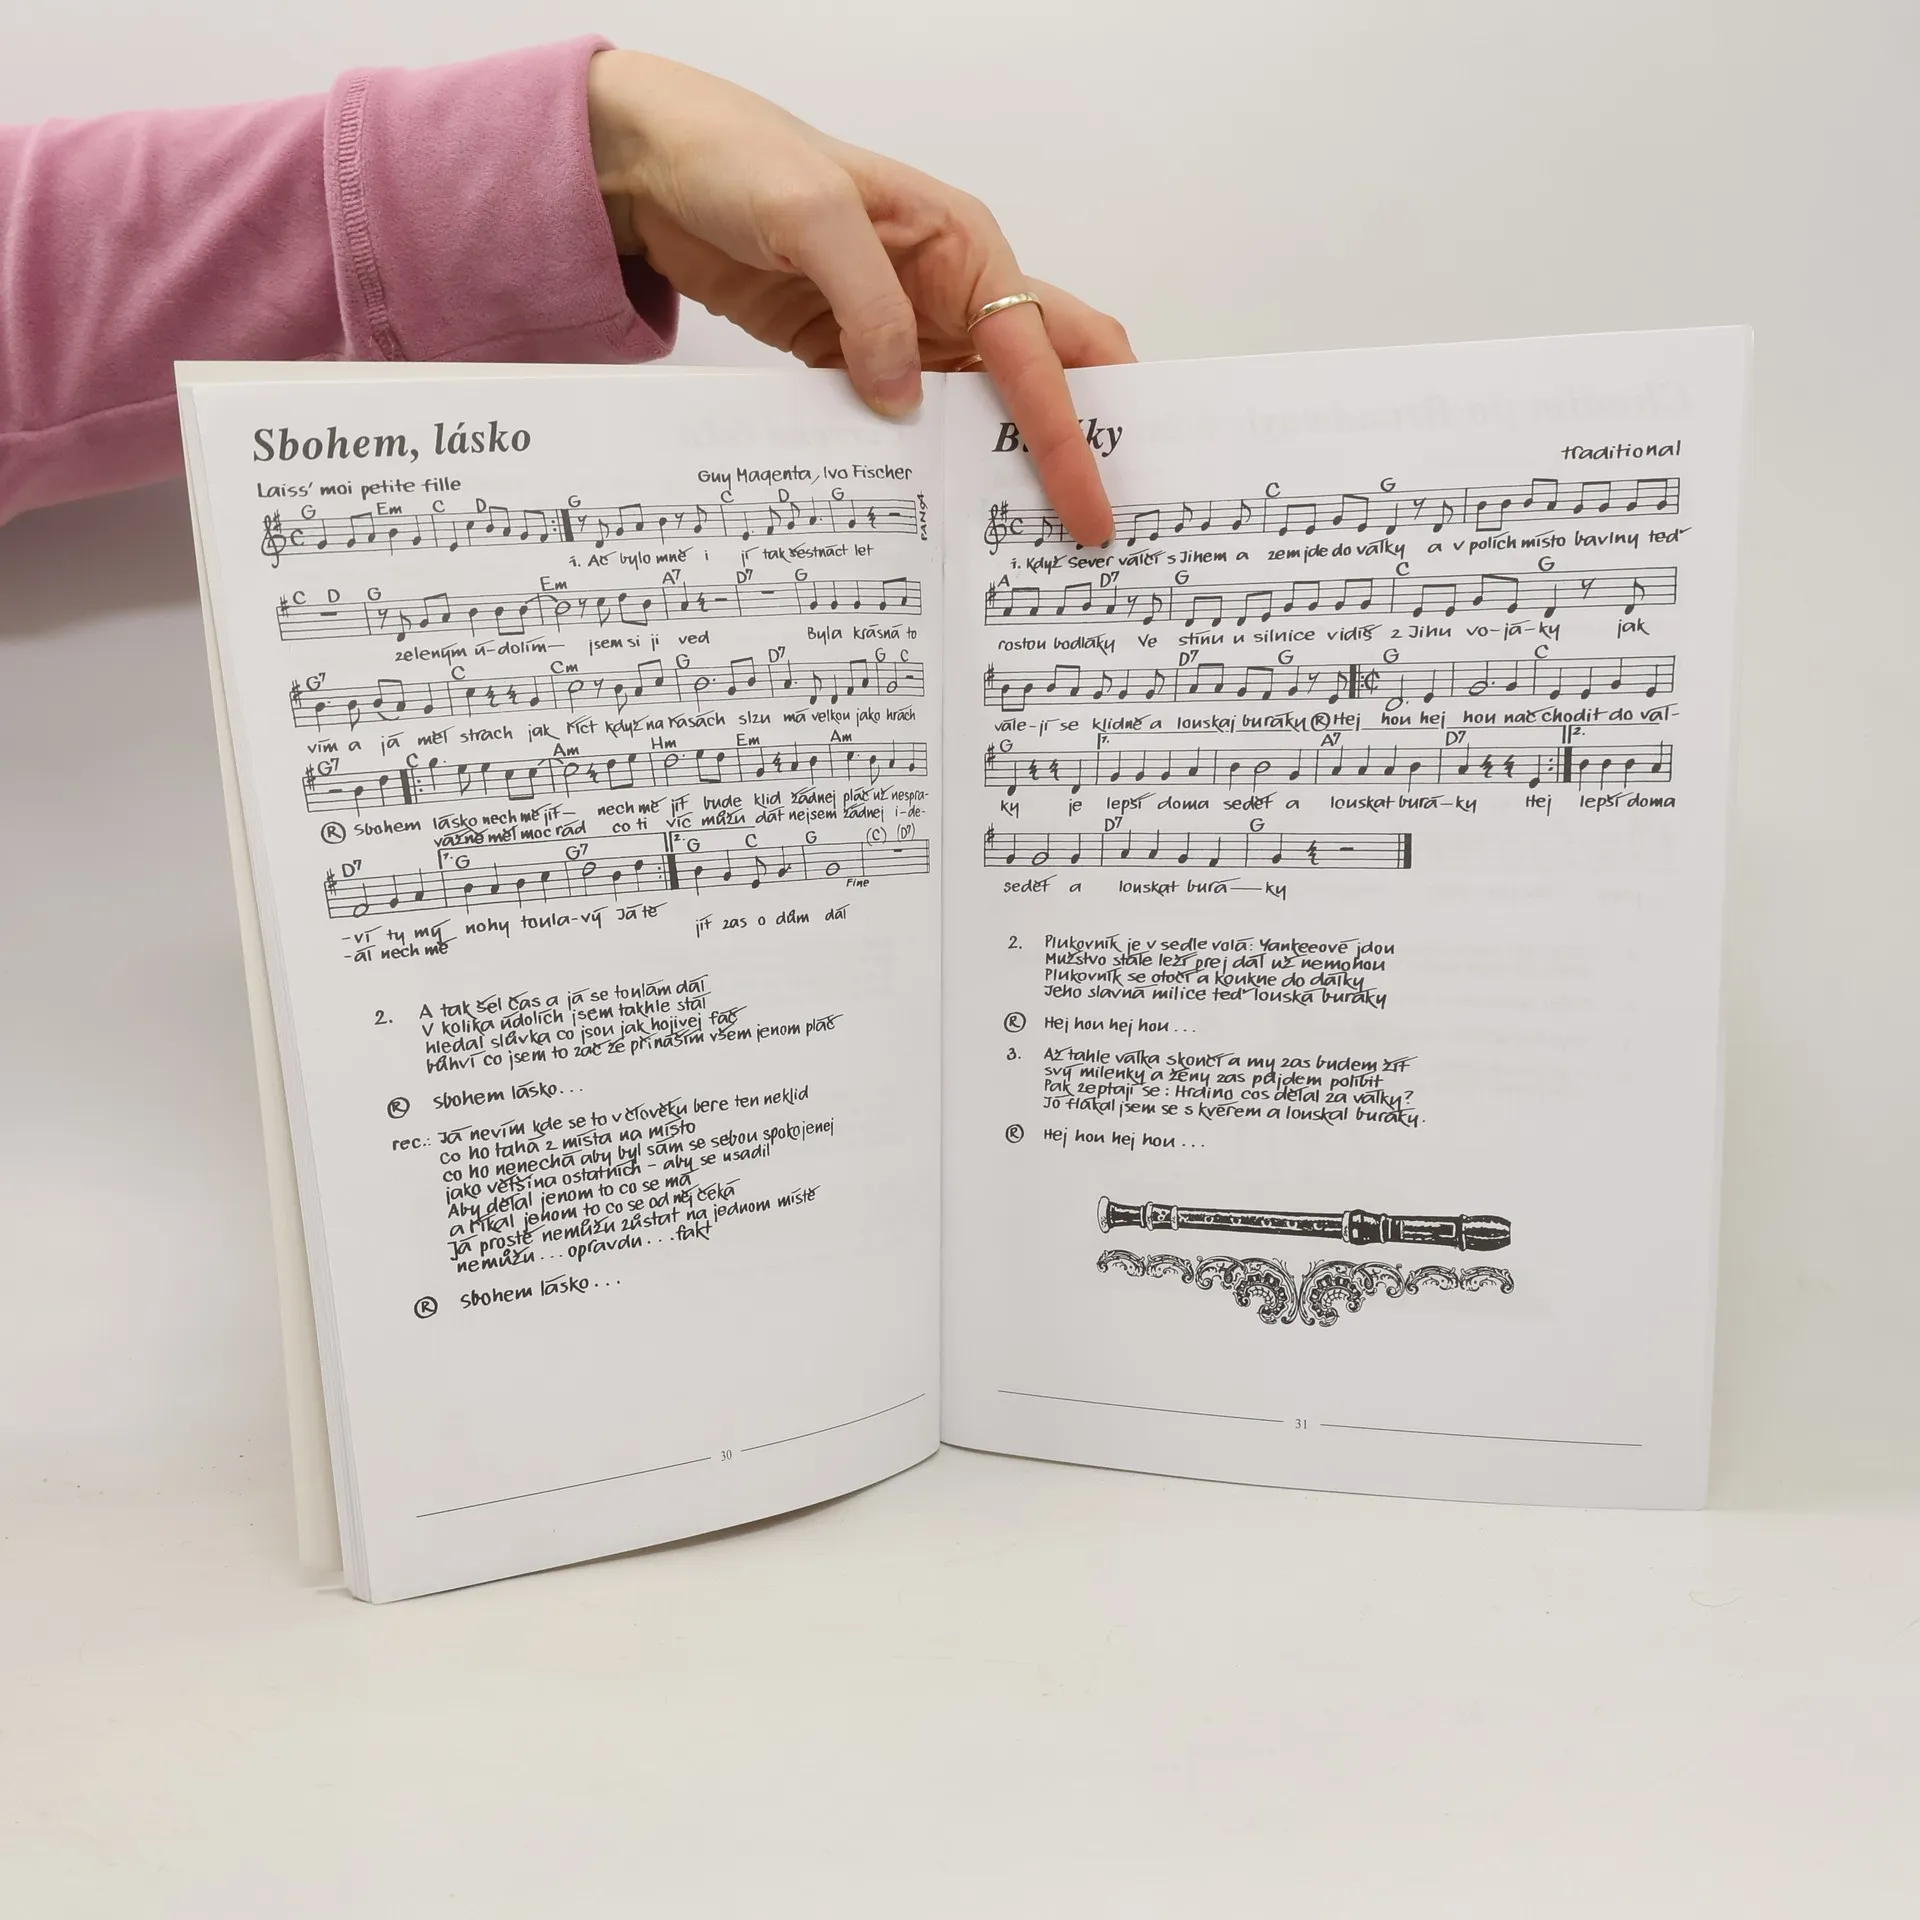 Sbohem, lásko
Laiss' moi petite fille
Guy Magenta, Ivo Fischer
G Em C D G C D G
PANSA
1. Ač bylo mně i jí tak šestnáct let
C D G Em A7 D7 G
zeleným ú-dolím— jsem si ji ved Byla krásná to
G7 C Cm G D7 G C
vím a já měl strach jak říct když na řasách slzu má velkou jako hrách
G7 C Am Hm Em Am
Ⓡ Sbohem lásko nech mě jít— nech mě jít bude klid žádnej pláč už nespra-
vážně měl moc rád co ti víc můžu dát nejsem žádnej i-de-
D7 1. G G7 2. G C G (C) (D7)
Fine
-ví ty mý nohy toula-vý Já tě jít zas o dům dál
-ál nech mě
2. A tak šel čas a já se toulám dál
V kolika údolích jsem takhle stál
hledal slůvka co jsou jak hojivej fáč
bůhví co jsem to zač že přináším všem jenom pláč
Ⓡ sbohem lásko...
rec.: Já nevím kde se to v člověku bere ten neklid
co ho tahá z místa na místo
co ho nenechá aby byl sám se sebou spokojenej
jako většina ostatních - aby se usadil
Aby dělal jenom to co se má
a říkal jenom to co se od něj čeká
Já prostě nemůžu zůstat na jednom místě
nemůžu... opravdu... fakt
Ⓡ sbohem lásko...
30
ky
traditional
C G
1. Když sever válčí s Jihem a zem jde do války a v polích místo bavlny teď
A D7 G C G
rostou bodláky Ve stínu u silnice vidíš z Jihu vo-já-ky jak
D7 G G C
vále-jí se klidně a louskaj buráky Ⓡ Hej hou hej hou nač chodit do vál-
G 1. A7 D7 2.
ky je lepší doma sedět a louskat burá-ky Hej lepší doma
D7 G
sedět a louskat burá—ky
2. Plukovník je v sedle volá: Yankeeové jdou
Mužstvo stále leží prej dál už nemohou
Plukovník se otočí a koukne do dálky
Jeho slavná milice teď louská buráky
Ⓡ Hej hou hej hou...
3. Až tahle válka skončí a my zas budem žít
svý milenky a ženy zas půjdem políbit
Pak zeptají se: Hrdino cos dělal za války?
Jó flákal jsem se s kvérem a louskal buráky.
Ⓡ Hej hou hej hou...
31